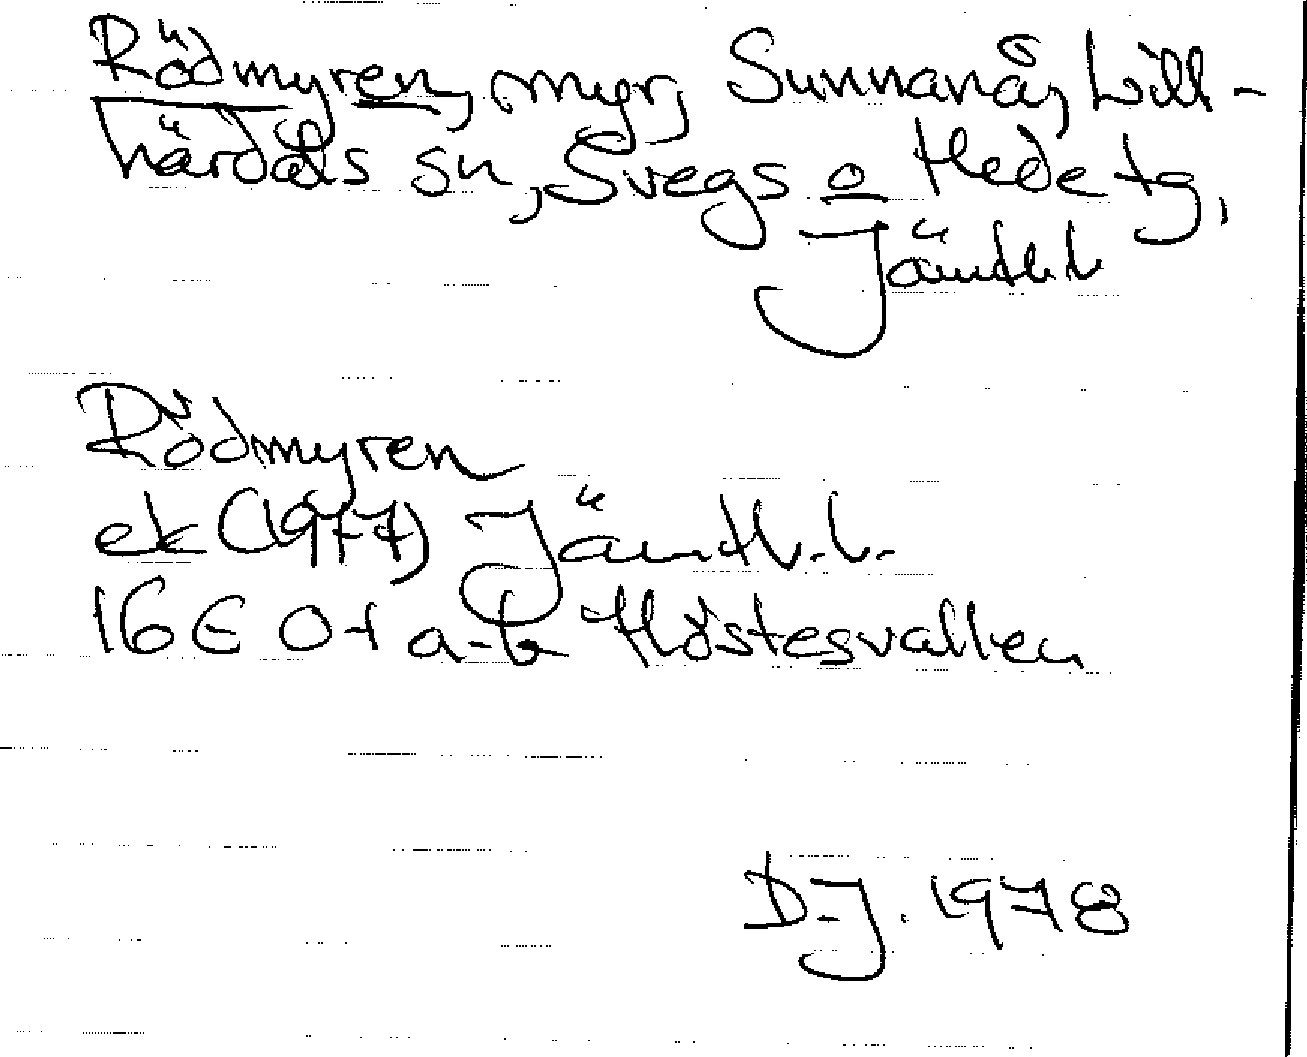 Rödmyren, myr, Sunnanå, Lill-
härdals sn, Svegs o Hede tg,
Jämtl. l
Rödmyren
ek (1977) Jämtl. l.
16E 0-1 a-b Höstesvallen
D.J. 1978